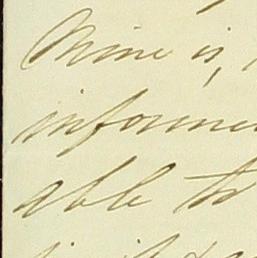 Mine is,
informe
able to